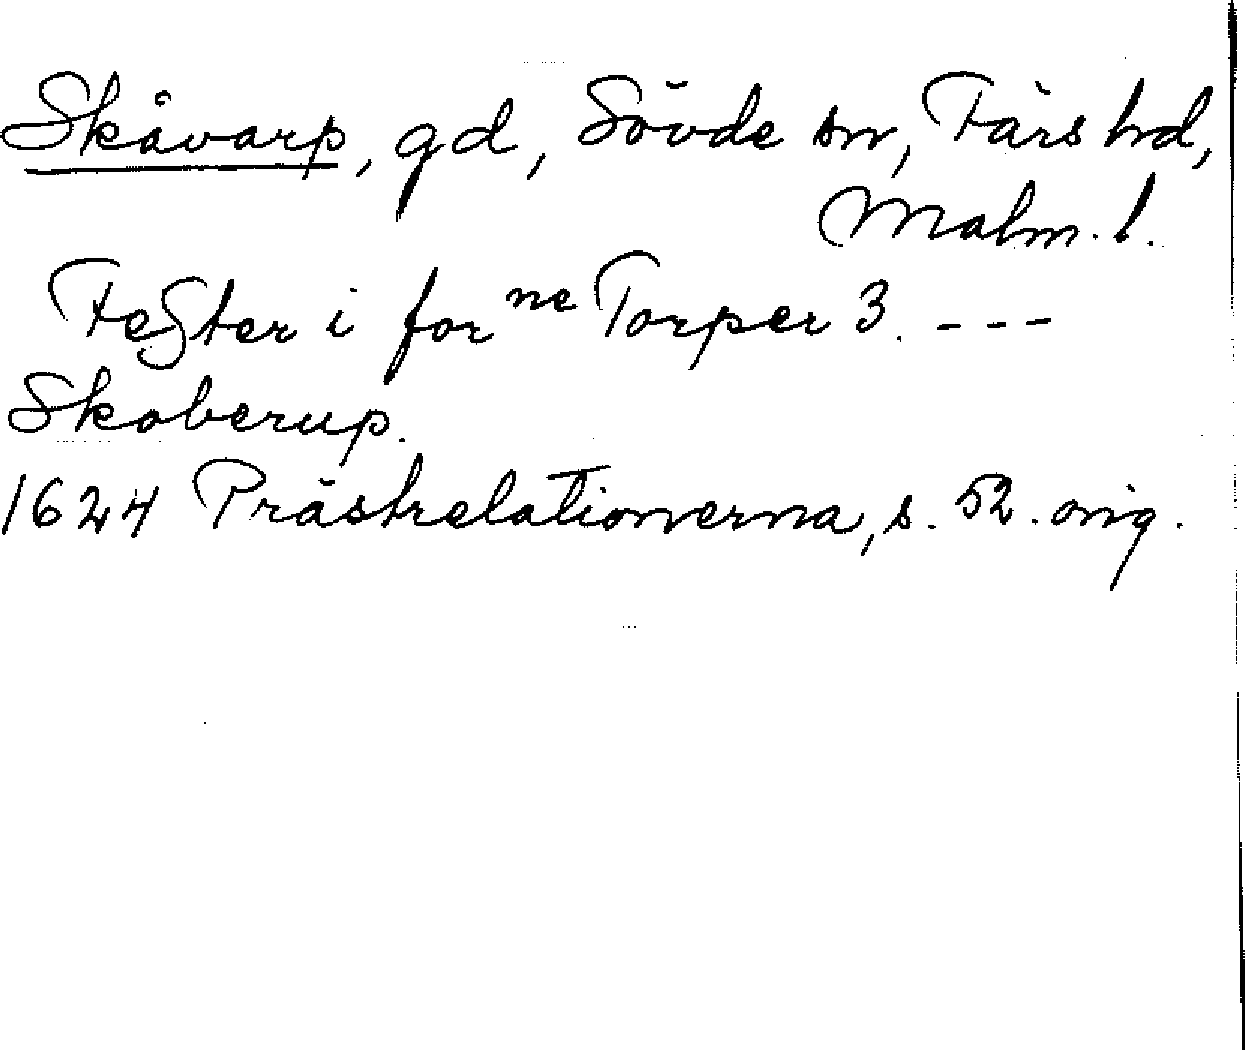 Skåvarp, gd, Sövde sn, Färs hd,
Malm. l.
Fester i for ne Torper 3. ---
Skaberup.
1624 Prästrelationerna, s. 52. orig.